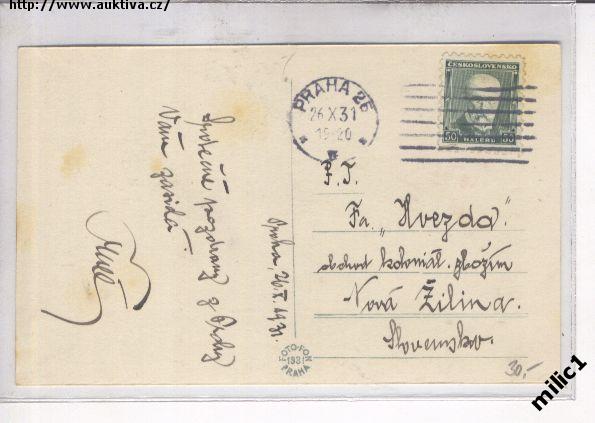 http://www.auktiva.cz/
ČESKOSLOVENSKO
50 50
HALÉŘŮ
PRAHA 26
26 X 31
19-20
P. T.
Fa. „Hvezda“
obchod koloniál. zbožím
Nová Žilina.
Slovensko.
Praha, 26.X.1931.
Srdečné pozdravy z Prahy
Vám zasílá
FOTO-FON
1931
PRAHA
30,-
milic1